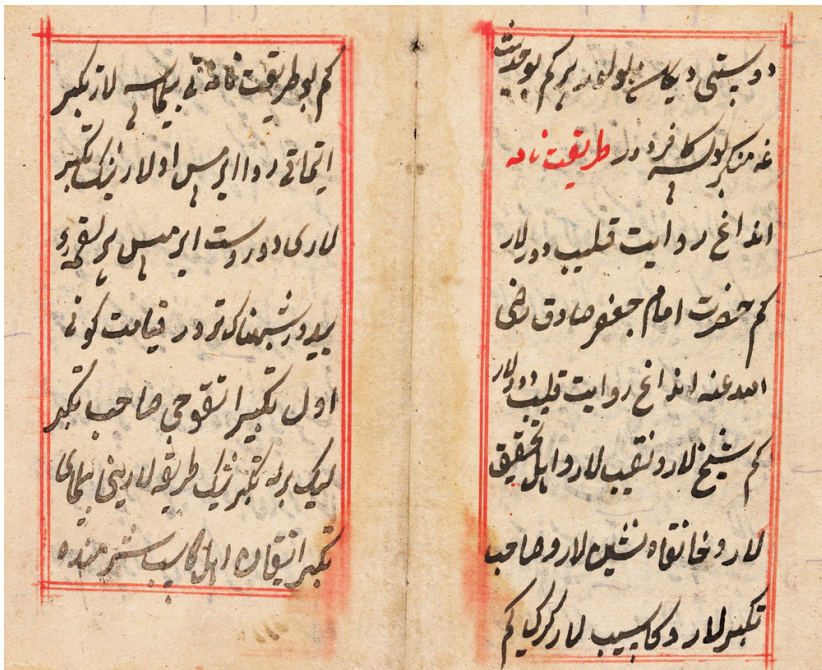 دوستی دیکان بولور هر کم بو حدیث
غه منکر بولسه کافر دور طریقت نامه
انداغ روایت قلیب دورلار
کم حضرت امام جعفر صادق رضی
الله عنه انداغ روایت قلیب دورلار
کم شیخ لار و نقیب لار و اهل تحقیق
لار و خانقاه نشین لار و صاحب
تکبیر لار و کاسیب لار کرک کیم
کم بو طریقت نامه نی بیلماسه لار تکبیر
ایتماقی روا ایرمس اولارنینک تکبیر
لاری دوروست ایرمس هر لقمه
دور قیامت کونی
اول تکبیر اتقوجی صاحب تکبیر
لیک برله تکبیرنینک طریقه لارینی بیلمای
تکبیر ایتقان اهل کاسیب شرمنده